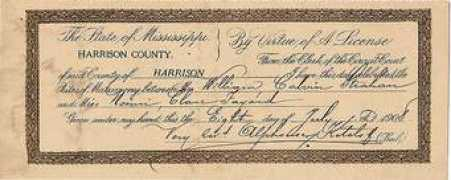 The State of Mississippi
HARRISON COUNTY.
By Virtue of A License
from the Clerk of the Circuit Court
of said County of HARRISON I have this day celebrated the
Rites of Matrimony between Mr William Calvin
and Miss Clara
Given under my hand this the Eight day of July AD 1908
Very
(Seal)